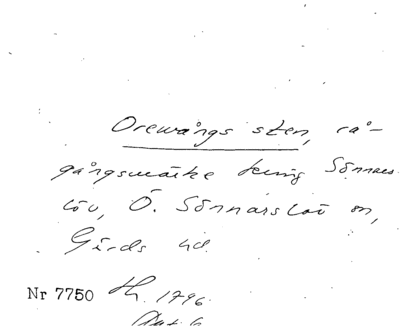 Orewångs sten, rå-
gångsmärke kring Sönnars-
löv, Ö. Sönnarslöv sn,
Gärds hd.
Nr 7750 Th. 1796.